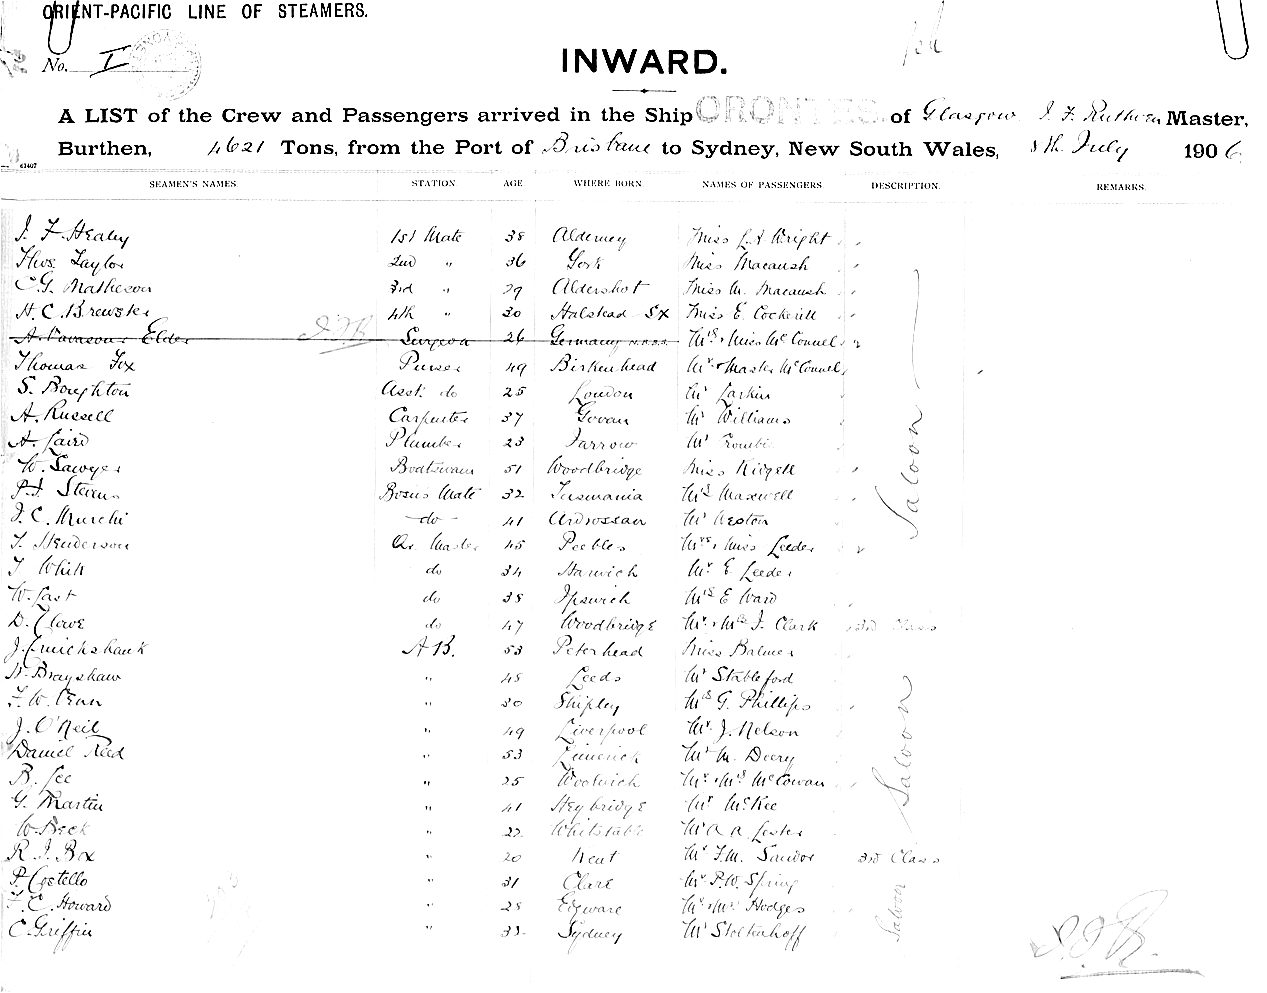 ORIENT-PACIFIC LINE OF STEAMERS.
No. I
INWARD.
A LIST of the Crew and Passengers arrived in the Ship ORONTES. of Glasgow J. F. Ruthven Master,
Burthen, 4621 Tons, from the Port of Brisbane to Sydney, New South Wales, 8th July 1906
63407
SEAMEN'S NAMES. STATION. AGE WHERE BORN. NAMES OF PASSENGERS DESCRIPTION. REMARKS.
J. F. Healey 1st Mate 38 Alderney Miss L A Wright
Thos. Taylor 2nd " 36 York Miss Macansh
C. G. Matheson 3rd " 29 Aldershot Miss M. Macansh
H. C. Brewster 4th " 30 Halstead SX Miss E. Cockerill
Elder Surgeon 26 Germany Mrs & Miss McConnel
Thomas Fox Purser 49 Birkenhead Mr & Master McConnel
S. Boughton Asst. do 25 London Mr Larkin
A. Russell Carpenter 37 Govan Mr Williams
A. Laird Plumber 23 Jarrow Mr
W. Sawyer Boatswain 51 Woodbridge Miss Ridgell
Stevens Bosuns Mate 32 Tasmania Mrs Maxwell
J. C. Murchi do 41 Ardrossan Mr Weston
T. Henderson Qr. Master 45 Peebles Mrs & Miss Leeder
T White do 34 Harwich Mr E. Leeder
W. Last do 38 Ipswich Mrs E Ward
D. Clowe do 47 Woodbridge Mr & Mrs J. Clark 3rd Class
J. Cruickshank A.B. 53 Peterhead Miss Balmer
W. Brayshaw " 45 Leeds Mr Stableford
F. W. Venn " 30 Shipley Mrs G. Phillips
J. O'Neil " 49 Liverpool Mr J. Nelson
Daniel Reed " 53 Limerick Mr M. Doery
B. Lee " 25 Woolwich Mr & Mrs McCowan
G. Martin " 41 Heybridge Mr McKee
W Beck " 22 Whitstable Mr A A Lester
R. J. Box " 20 Kent Mr F. M. Sandor 3rd Class
P. Costello " 31 Clare Mr P. W. Spring
F. C. Howard " 28 Edgware Mr & Mrs Hodges
C. Griffin " 33 Sydney Mr Stoltenhoff
Saloon
Saloon
Saloon
J. F. R.
J. F. R.